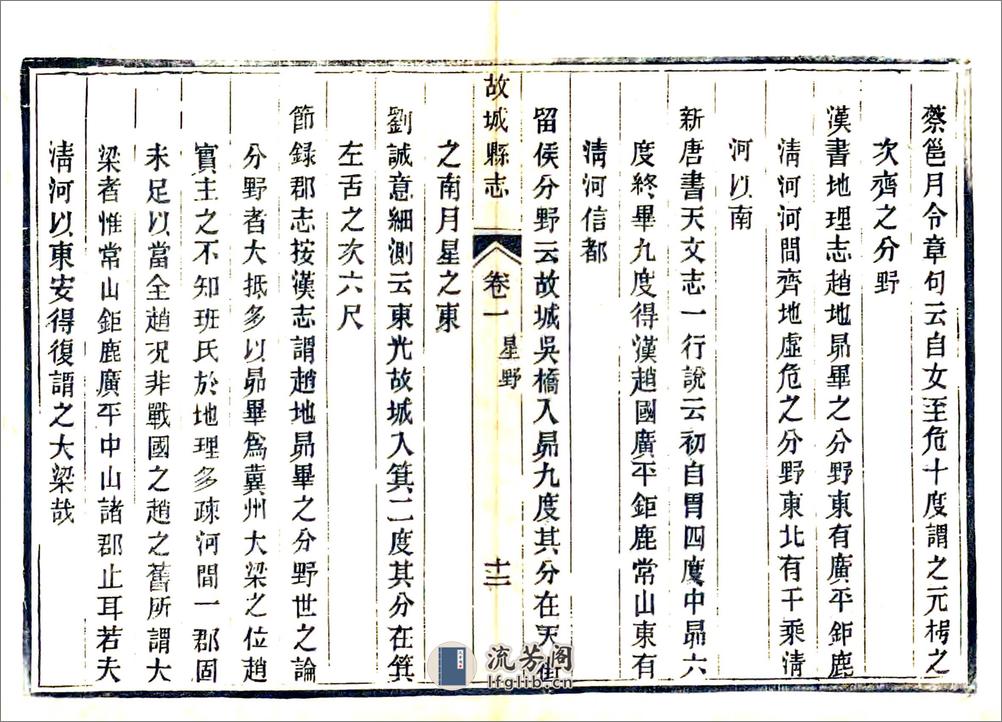 蔡邕月令章句云自女至危十度謂之元枵之
次齊之分野
漢書地理志趙地昴畢之分野東有廣平鉅鹿
淸河河間齊地虛危之分野東北有千乘淸
河以南
新唐書天文志一行說云初自胃四度中昴六
度終畢九度得漢趙國廣平鉅鹿常山東有
淸河信都
留侯分野云故城吳橋入昴九度其分在天街
故城縣志
卷一
星野
十二
之南月星之東
劉誠意細測云東光故城入箕二度其分在箕
左舌之次六尺
節録郡志按漢志謂趙地昴畢之分野世之論
分野者大抵多以昴畢爲冀州大梁之位趙
實主之不知班氏於地理多疎河間一郡固
未足以當全趙况非戰國之趙之舊所謂大
梁者惟常山鉅鹿廣平中山諸郡止耳若夫
淸河以東安得復謂之大梁哉
流芳阁
lfglib.cn